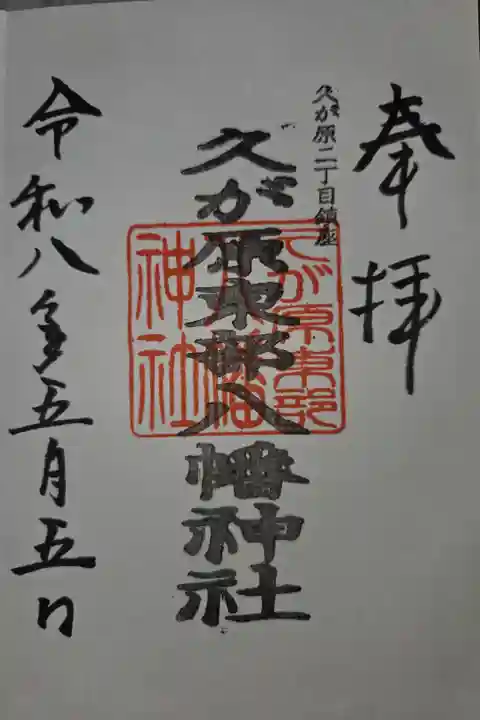 奉拝
久が原二丁目鎮座
久が原東部八幡神社
久が原東部
八幡
神社
令和八年五月五日